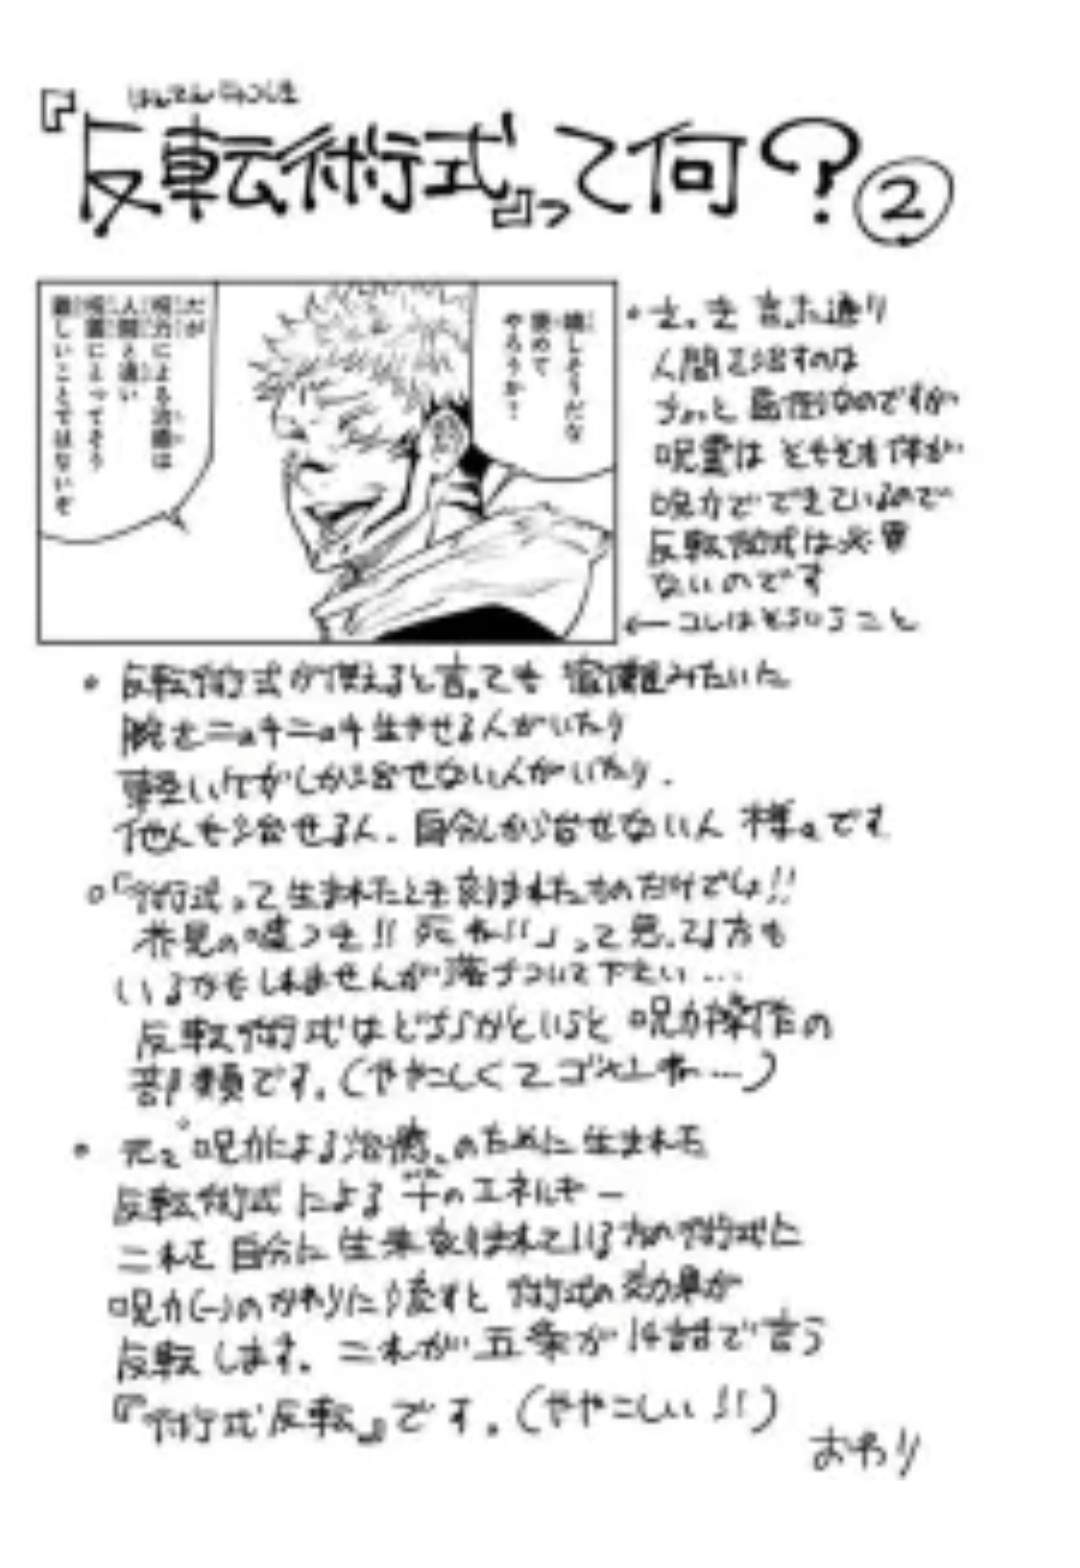 はんてんじゅつしき
『反転術式』って何？②
嬉しそうだな
褒めて
やろうか？
だが
呪力による治癒は
人間と違い
呪霊にとってそう
難しいことではないぞ
・さっき言った通り
人間を治すのは
ちょっと面倒なのですが
呪霊はそもそも体が
呪力でできているので
反転術式は必要
ないのです
←コレはそういうこと
・反転術式が使えると言っても宿儺みたいに
腕をニョキニョキ生やせる人がいたり
軽いケガしか治せない人がいたり、
他人も治せる人、自分しか治せない人 様々です
○「術式って生まれたとき刻まれたものだけでしょ!!
芥見の嘘つき!! 死ね!!」って思ってる方も
いるかもしれませんが落ちついて下さい…
反転術式はどちらかというと呪力操作の
部類です。(ややこしくてゴメンネ…)
・元々"呪力による治癒"のために生まれた
反転術式による＋のエネルギー
これを自分に生来刻まれている方の術式に
呪力(－)のかわりに流すと術式の効果が
反転します。これが五条が14話で言う
『術式反転』です。(ややこしい!!)
おわり